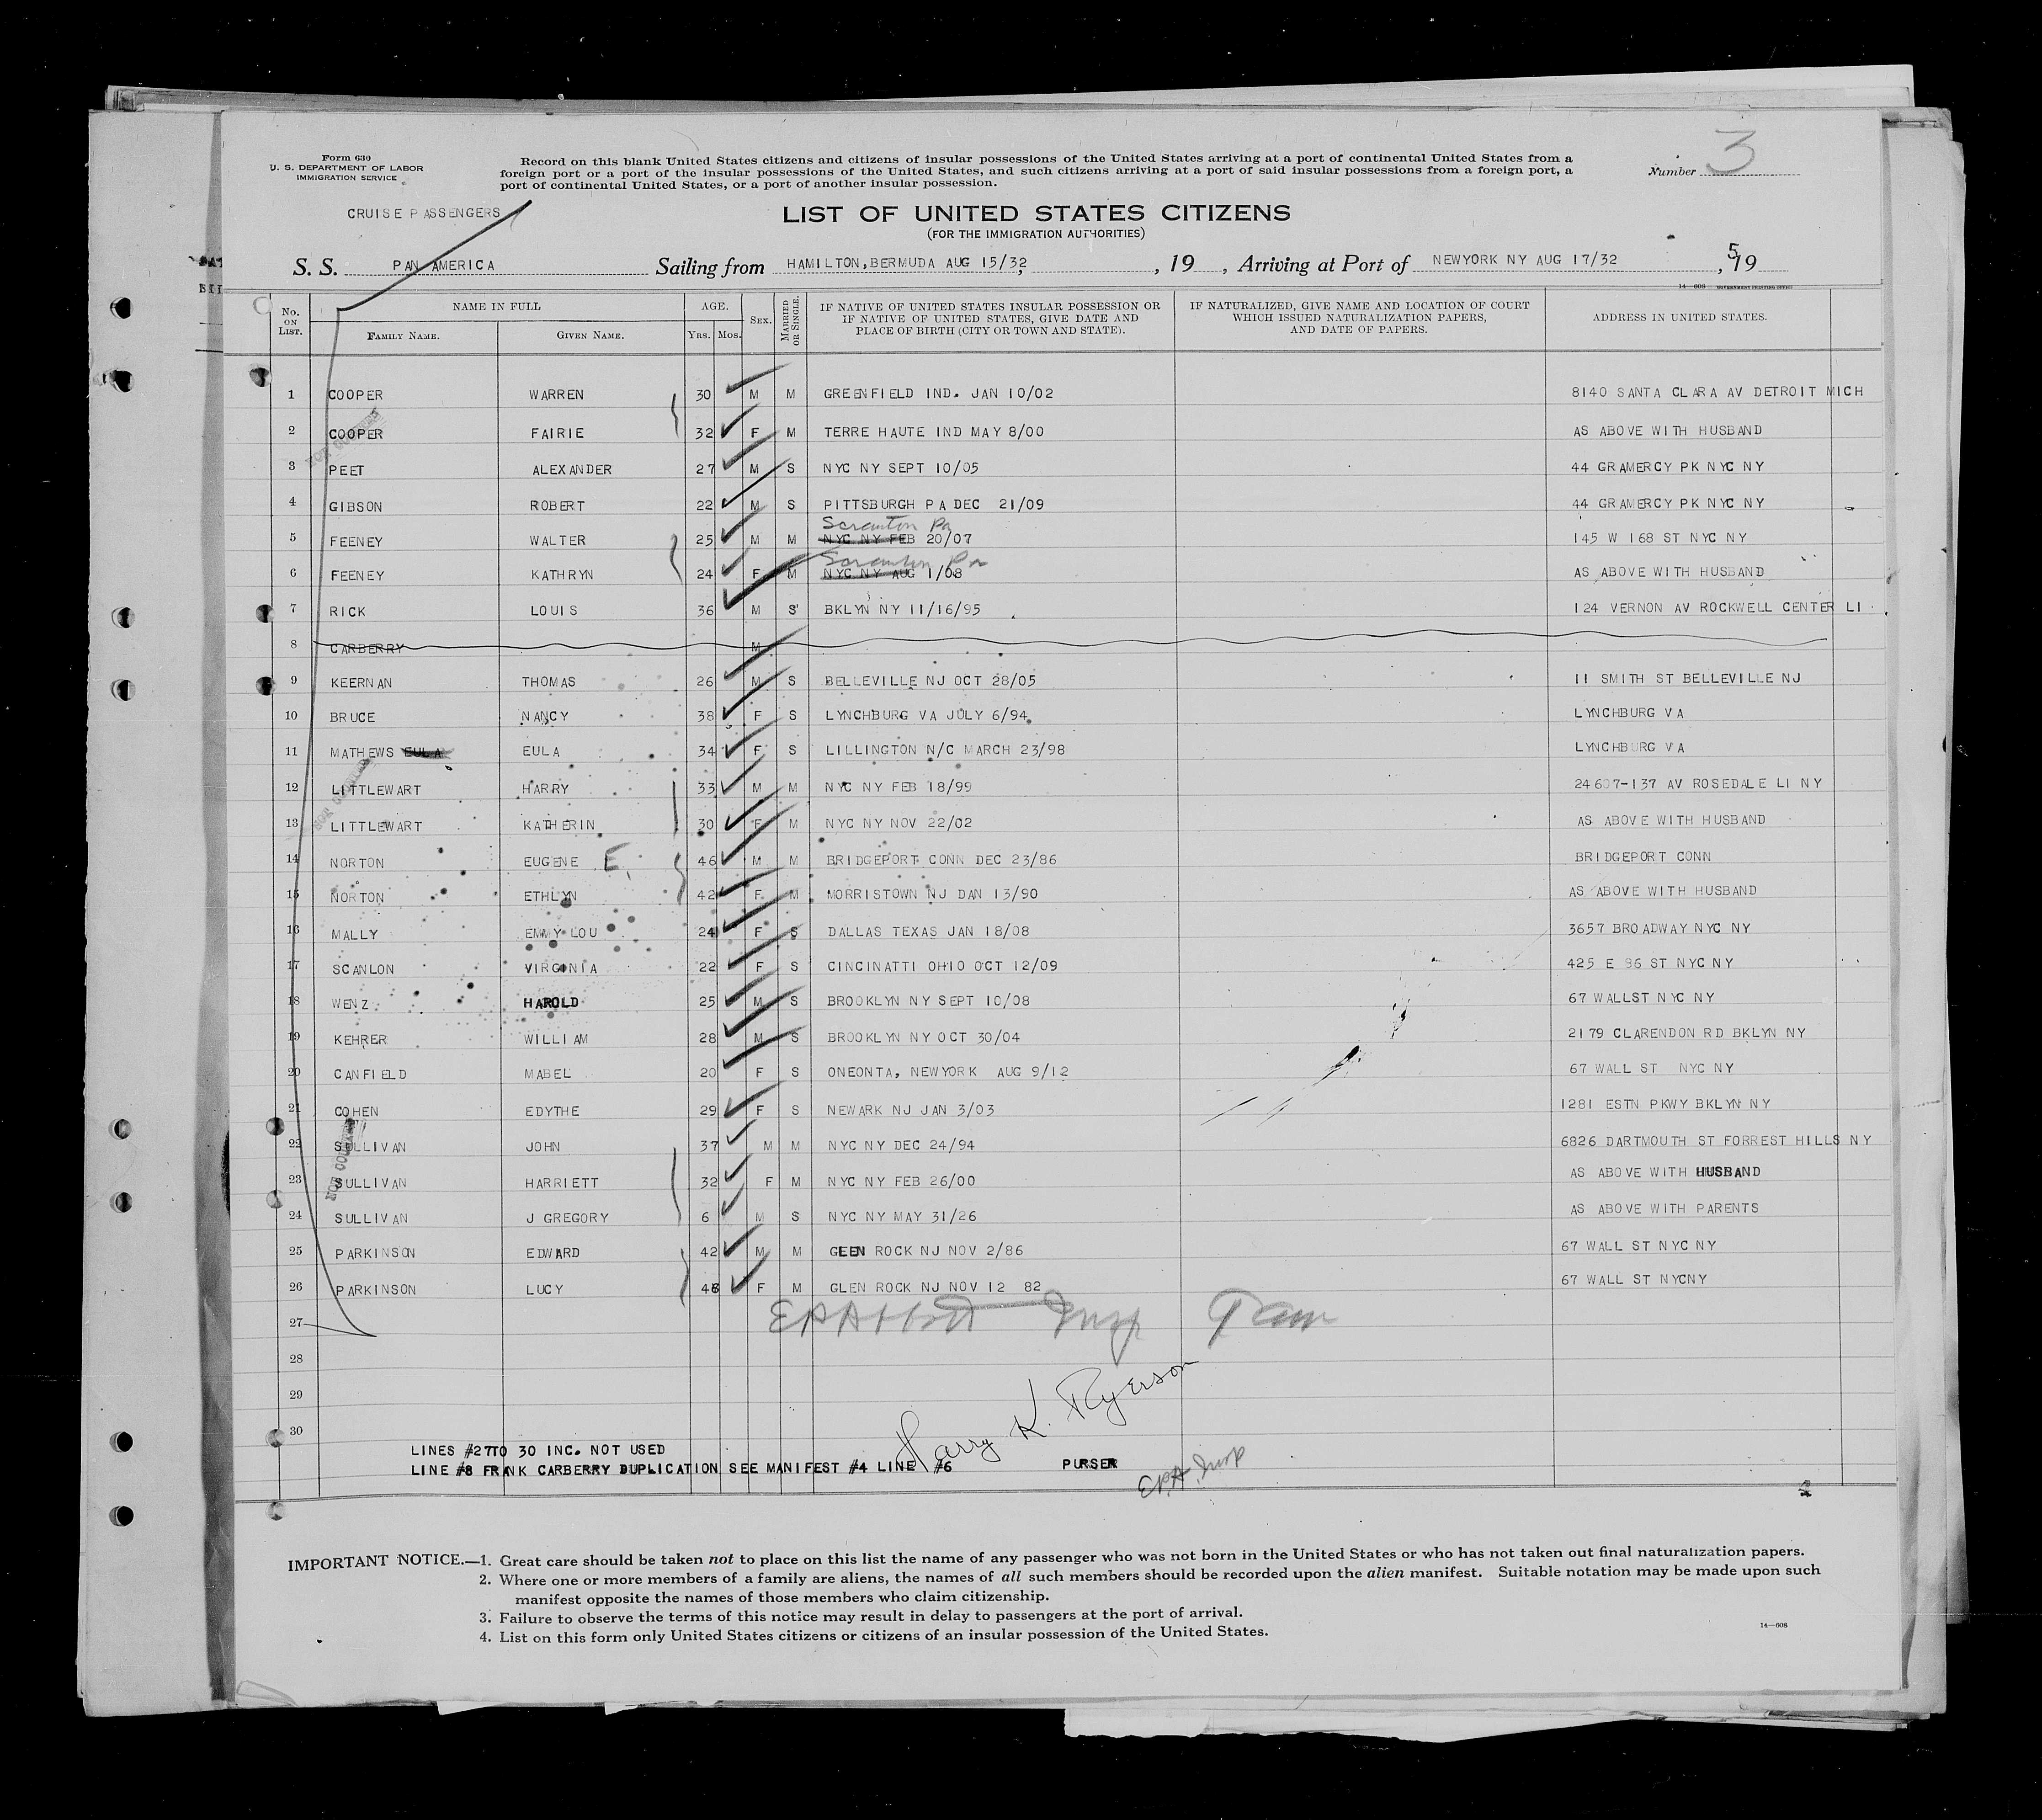 Form 630
U. S. DEPARTMENT OF LABOR
IMMIGRATION SERVICE
Record on this blank United States citizens and citizens of insular possessions of the United States arriving at a port of continental United States from a
foreign port or a port of the insular possessions of the United States, and such citizens arriving at a port of said insular possessions from a foreign port, a
port of continental United States, or a port of another insular possession.
Number 3
CRUISE PASSENGERS
LIST OF UNITED STATES CITIZENS
(FOR THE IMMIGRATION AUTHORITIES)
S. S. PAN AMERICA Sailing from HAMILTON, BERMUDA AUG 15/32, , 19 , Arriving at Port of NEWYORK NY AUG 17/32 , 19
5
14—608 GOVERNMENT PRINTING OFFICE
No. ON LIST. NAME IN FULL FAMILY NAME. GIVEN NAME. AGE. YRS. MOS. SEX. MARRIED OR SINGLE. IF NATIVE OF UNITED STATES INSULAR POSSESSION OR IF NATIVE OF UNITED STATES, GIVE DATE AND PLACE OF BIRTH (CITY OR TOWN AND STATE). IF NATURALIZED, GIVE NAME AND LOCATION OF COURT WHICH ISSUED NATURALIZATION PAPERS, AND DATE OF PAPERS. ADDRESS IN UNITED STATES.
1 COOPER WARREN 30 M M GREENFIELD IND. JAN 10/02 8140 SANTA CLARA AV DETROIT MICH
2 COOPER FAIRIE 32 F M TERRE HAUTE IND MAY 8/00 AS ABOVE WITH HUSBAND
3 PEET ALEXANDER 27 M S NYC NY SEPT 10/05 44 GRAMERCY PK NYC NY
4 GIBSON ROBERT 22 M S PITTSBURGH PA DEC 21/09 44 GRAMERCY PK NYC NY
Scranton Pa
5 FEENEY WALTER 25 M M NYC NY FEB 20/07 145 W 168 ST NYC NY
Scranton Pa
6 FEENEY KATHRYN 24 F M NYC NY AUG 1/08 AS ABOVE WITH HUSBAND
7 RICK LOUIS 36 M S BKLYN NY 11/16/95 124 VERNON AV ROCKWELL CENTER LI
8 CARBERRY M
9 KEERNAN THOMAS 26 M S BELLEVILLE NJ OCT 28/05 11 SMITH ST BELLEVILLE NJ
10 BRUCE NANCY 38 F S LYNCHBURG VA JULY 6/94 LYNCHBURG VA
11 MATHEWS EULA EULA 34 F S LILLINGTON N/C MARCH 23/98 LYNCHBURG VA
12 LITTLEWART HARRY 33 M M NYC NY FEB 18/99 24607-137 AV ROSEDALE LI NY
13 LITTLEWART KATHERIN 30 F M NYC NY NOV 22/02 AS ABOVE WITH HUSBAND
14 NORTON EUGENE E. 46 M M BRIDGEPORT CONN DEC 23/86 BRIDGEPORT CONN
15 NORTON ETHLYN 42 F M MORRISTOWN NJ DAN 13/90 AS ABOVE WITH HUSBAND
16 MALLY EMMY LOU 24 F S DALLAS TEXAS JAN 18/08 3657 BROADWAY NYC NY
17 SCANLON VIRGINIA 22 F S CINCINATTI OHIO OCT 12/09 425 E 86 ST NYC NY
18 WENZ HAROLD 25 M S BROOKLYN NY SEPT 10/08 67 WALLST NYC NY
19 KEHRER WILLIAM 28 M S BROOKLYN NY OCT 30/04 2179 CLARENDON RD BKLYN NY
20 CANFIELD MABEL 20 F S ONEONTA, NEWYORK AUG 9/12 67 WALL ST NYC NY
21 COHEN EDYTHE 29 F S NEWARK NJ JAN 3/03 1281 ESTN PKWY BKLYN NY
22 SULLIVAN JOHN 37 M M NYC NY DEC 24/94 6826 DARTMOUTH ST FORREST HILLS NY
23 SULLIVAN HARRIETT 32 F M NYC NY FEB 26/00 AS ABOVE WITH HUSBAND
24 SULLIVAN J GREGORY 6 M S NYC NY MAY 31/26 AS ABOVE WITH PARENTS
25 PARKINSON EDWARD 42 M M GLEN ROCK NJ NOV 2/86 67 WALL ST NYC NY
26 PARKINSON LUCY F M GLEN ROCK NJ NOV 12 82 67 WALL ST NYCNY
27
E P Abbott Insp
28
29
Harry K. Ryerson
30
LINES #27TO 30 INC. NOT USED
LINE #8 FRANK CARBERRY DUPLICATION SEE MANIFEST #4 LINE #6 PURSER
E.P.A. Insp
IMPORTANT NOTICE.—1. Great care should be taken not to place on this list the name of any passenger who was not born in the United States or who has not taken out final naturalization papers.
2. Where one or more members of a family are aliens, the names of all such members should be recorded upon the alien manifest. Suitable notation may be made upon such
manifest opposite the names of those members who claim citizenship.
3. Failure to observe the terms of this notice may result in delay to passengers at the port of arrival.
4. List on this form only United States citizens or citizens of an insular possession of the United States.
14—608